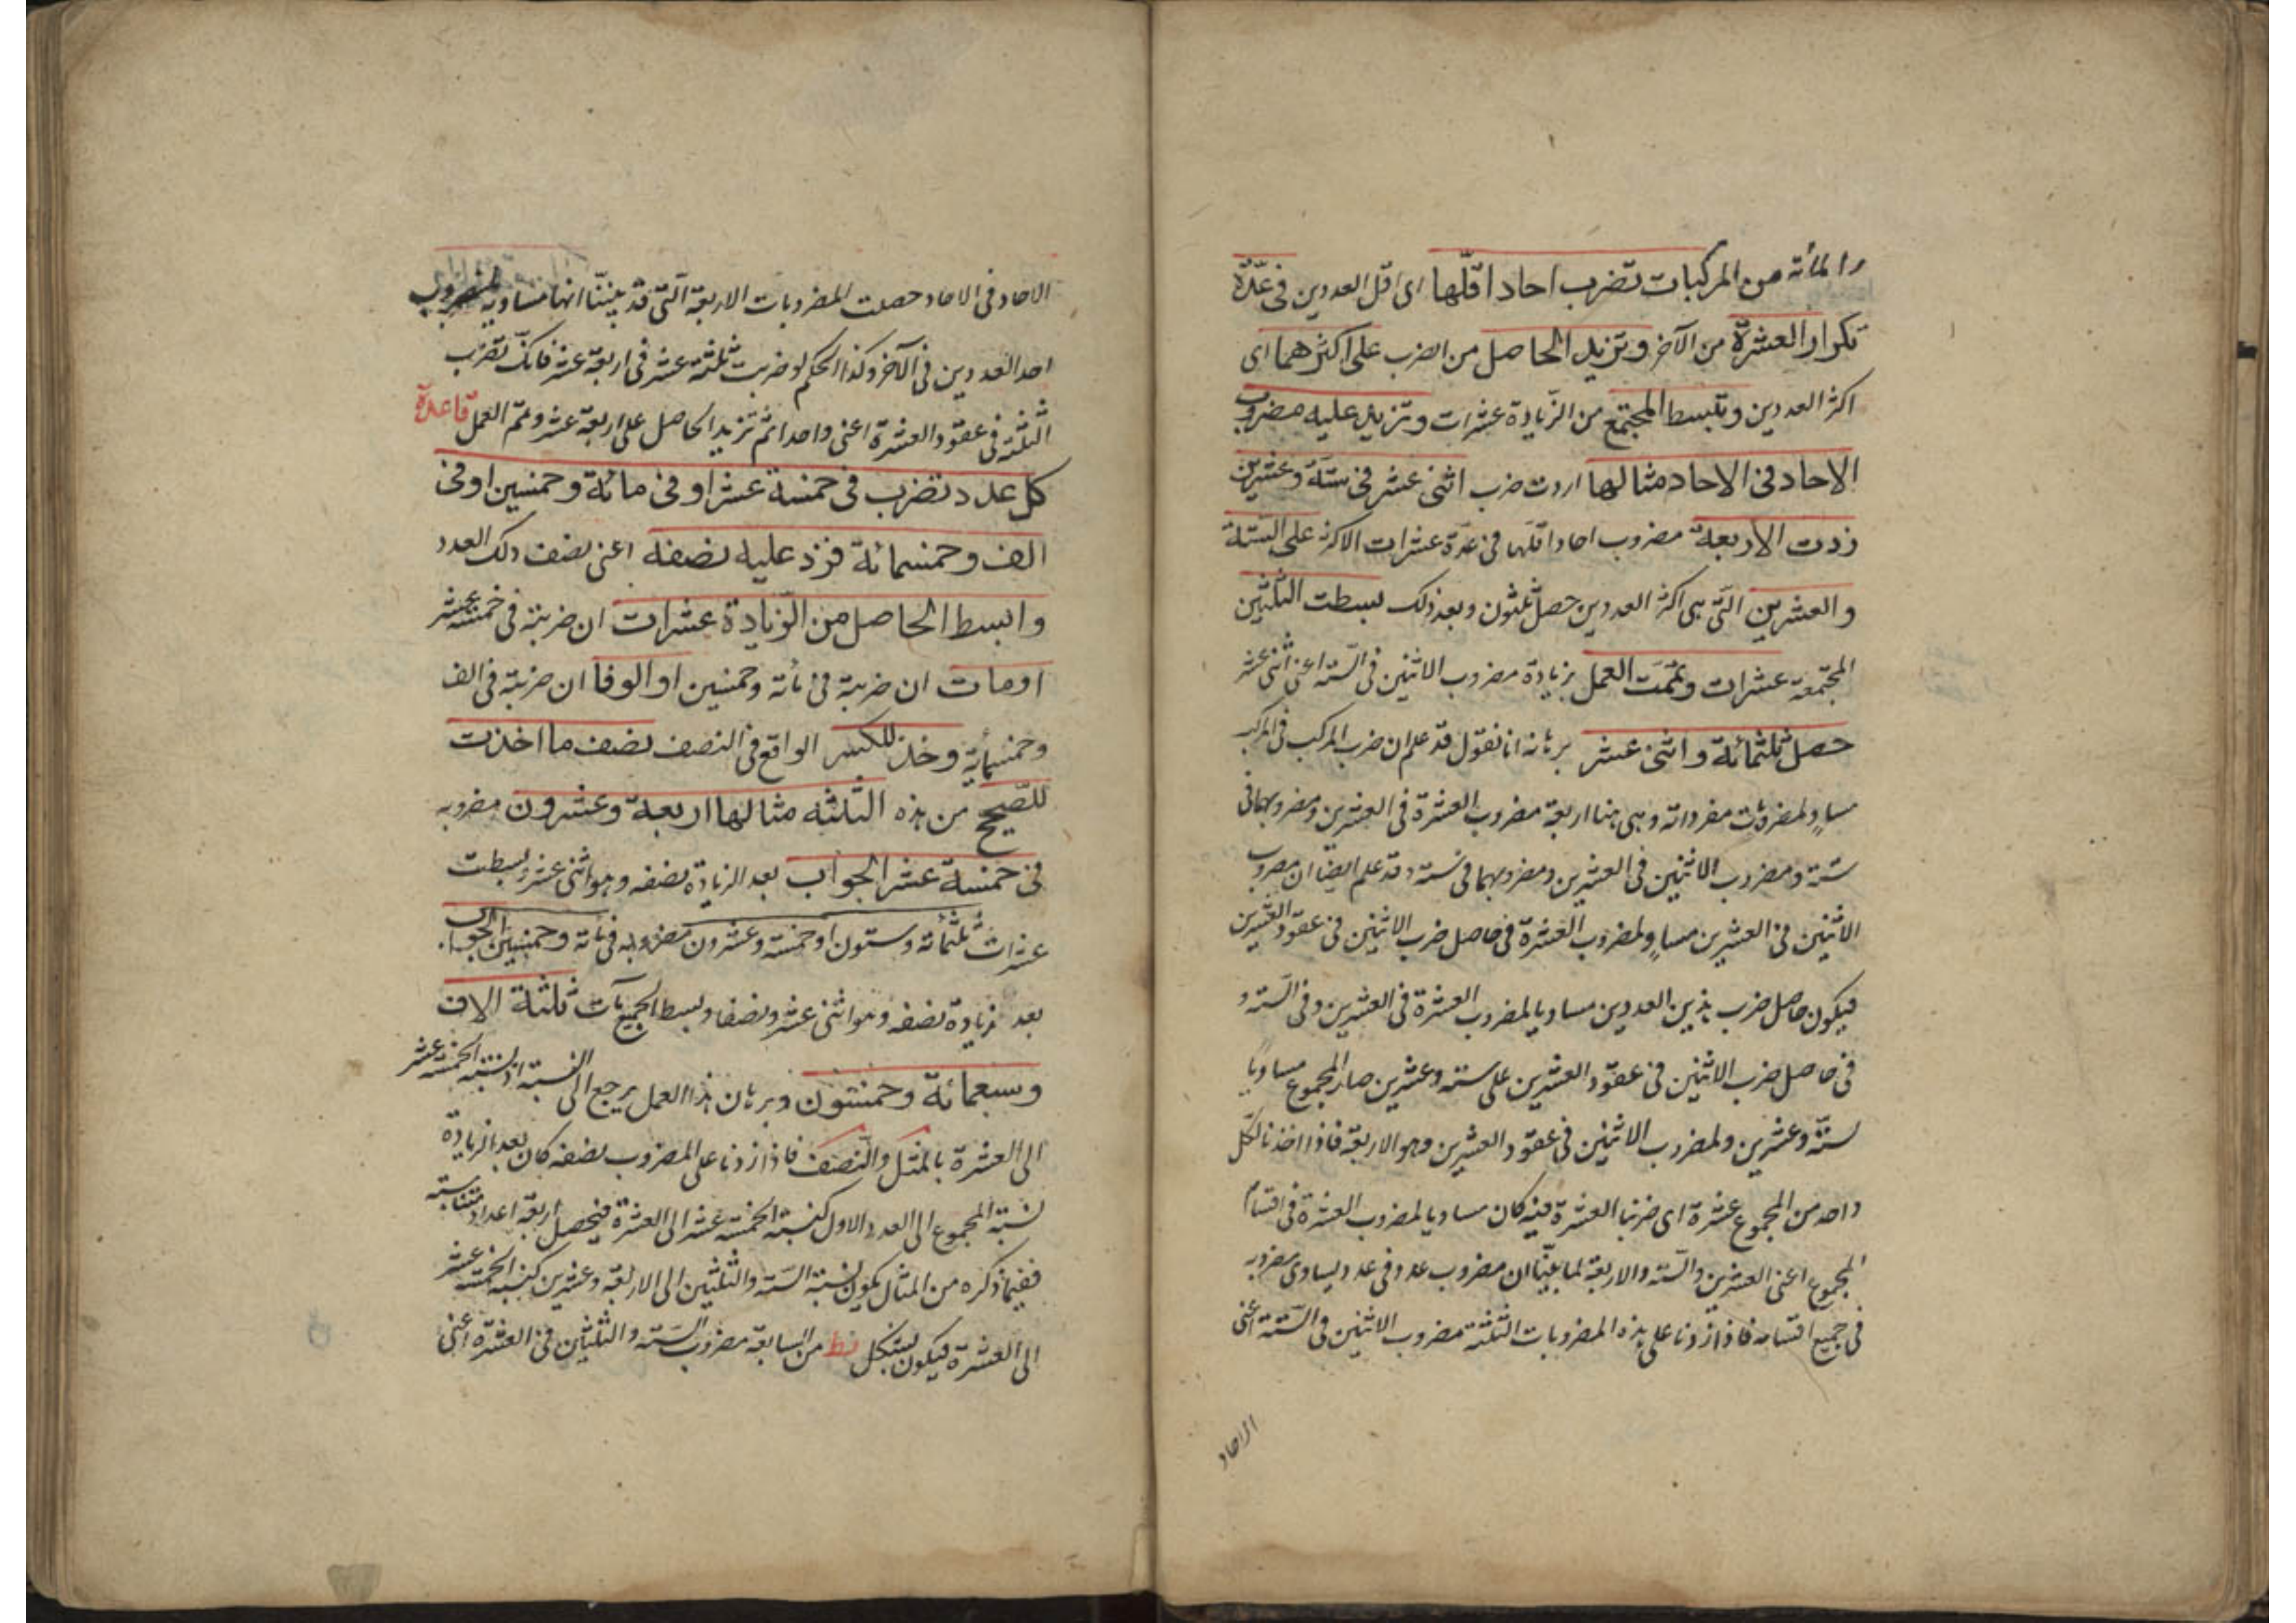 والمأته من المركبات تضرب احاد اقلّها اى اقل العددين فى عدّة
تكرار العشرة من الآخر وتزيد الحاصل من الضرب على اكثرهما اى
اكثر العددين وتبسط المجتمع من الزيادة عشرات وتزيد عليه مضروب
الاحاد فى الاحاد مثالها اردت ضرب اثنى عشر فى ستة وعشرين
زدت الاربعة مضروب احاد اقلها فى عدة عشرات الاكثر على الستة
والعشرين التى هى اكثر العددين حصل ثلثون وبعد ذلك بسطت الثلثين
المجتمعة عشرات وتممت العمل بزيادة مضروب الاثنين فى الستة اعنى اثنى عشر
حصل ثلثمائة واثنى عشر برهانه انا نقول قد علم ان ضرب المركب فى المركب
مساوٍ لمضروبات مفرداته وهى هنا اربعة مضروب العشرة فى العشرين ومضروبها فى
ستة ومضروب الاثنين فى العشرين ومضروبهما فى ستة وقد علم ايضا ان مضروب
الاثنين فى العشرين مساوٍ لمضروب العشرة فى حاصل ضرب الاثنين فى عقود العشرين
فيكون حاصل ضرب هذين العددين مساويا لمضروب العشرة فى العشرين وفى الستة و
فى حاصل ضرب الاثنين فى عقود العشرين على ستة وعشرين صار المجموع مساويا
لستة وعشرين ولمضروب الاثنين فى عقود العشرين وهو الاربعة فاذا اخذنا لكل
واحد من المجموع عشرة اى ضربنا العشرة فيه كان مساويا لمضروب العشرة فى اقسام
المجموع اعنى العشرين والستة والاربعة لما بيّنا ان مضروب عدد فى عدد يساوى مضروبه
فى جميع اقسامه فاذا زدنا على هذه المضروبات الثلثة مضروب الاثنين فى الستة اعنى
الاحاد
الاحاد فى الاحاد حصلت المضروبات الاربعة التى قد بيننا انها مساوية لمضروب
احد العددين فى الآخر وكذا الحكم لو ضربت ثلثة عشر فى اربعة عشر فانك تضرب
الثلثة فى عقود العشرة اعنى واحدا ثم تزيد الحاصل على اربعة عشر وتتم العمل قاعدة
كل عدد تضرب فى خمسة عشر او فى مائة وخمسين او فى
الف وخمسمائة فزد عليه نصفه اعنى نصف ذلك العدد
وابسط الحاصل من الزيادة عشرات ان ضربته فى خمسة عشر
او مات ان ضربته فى مأته وخمسين او الوفا ان ضربته فى الف
وخمسمأية وخذ للكسر الواقع فى النصف نصف ما اخذت
للصّحيح من هذه الثلثه مثالها اربعة وعشرون مضروبه
فى خمسة عشر الجواب بعد الزيادة نصفه وهو اثنى عشر وبسطت
عشرات ثلثمأته وستون او خمسة وعشرون مضروبه فى مأته وخمسين الجواب
بعد زيادة نصفه وهو اثنى عشر ونصفا وبسط الجميع مآت ثلثة الاف
وسبعمائة وخمسون وبرهان هذا العمل يرجع الى النسبة اذ نسبة الخمسة عشر
الى العشرة بالمثل والنصف فاذا زدنا على المضروب نصفه كان بعد الزيادة
نسبة المجموع الى العدد الاول كنسبة الخمسة عشر الى العشرة فيحصل اربعة اعداد متناسبة
ففيما ذكره من المثال يكون نسبة الستة والثلثين الى الاربعة وعشرين كنسبة الخمسة عشر
الى العشرة فيكون بشكل يط من السابعة مضروب الستة والثلثين فى العشرة اعنى